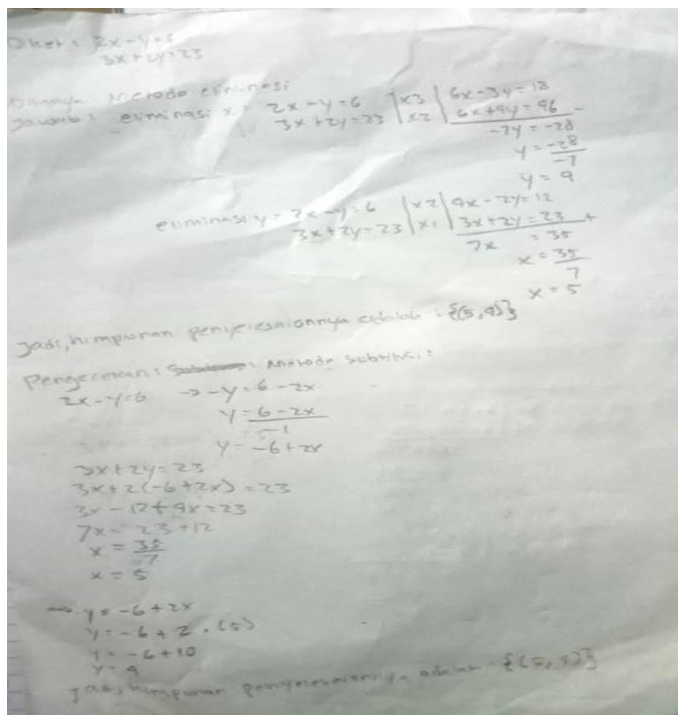 Diket : 2x - y = 6
3x + 2y = 23
Metode eliminasi
Jawab : eliminasi x : 2x - y = 6 | x3 | 6x - 3y = 18
3x + 2y = 23 | x2 | 6x + 4y = 46 -
-7y = -28
y = -28/-7
y = 4
eliminasi y = 2x - y = 6 | x2 | 4x - 2y = 12
3x + 2y = 23 | x1 | 3x + 2y = 23 +
7x = 35
x = 35/7
x = 5
Jadi, himpunan penyelesaiannya adalah : {(5,4)}
Pengecekan : Metode subtitusi :
2x - y = 6 → -y = 6 - 2x
y = 6 - 2x/-1
y = -6 + 2x
3x + 2y = 23
3x + 2(-6 + 2x) = 23
3x - 12 + 4x = 23
7x = 23 + 12
x = 35/7
x = 5
→ y = -6 + 2x
y = -6 + 2 . (5)
y = -6 + 10
y = 4
Jadi, himpunan penyelesaiannya adalah : {(5,4)}